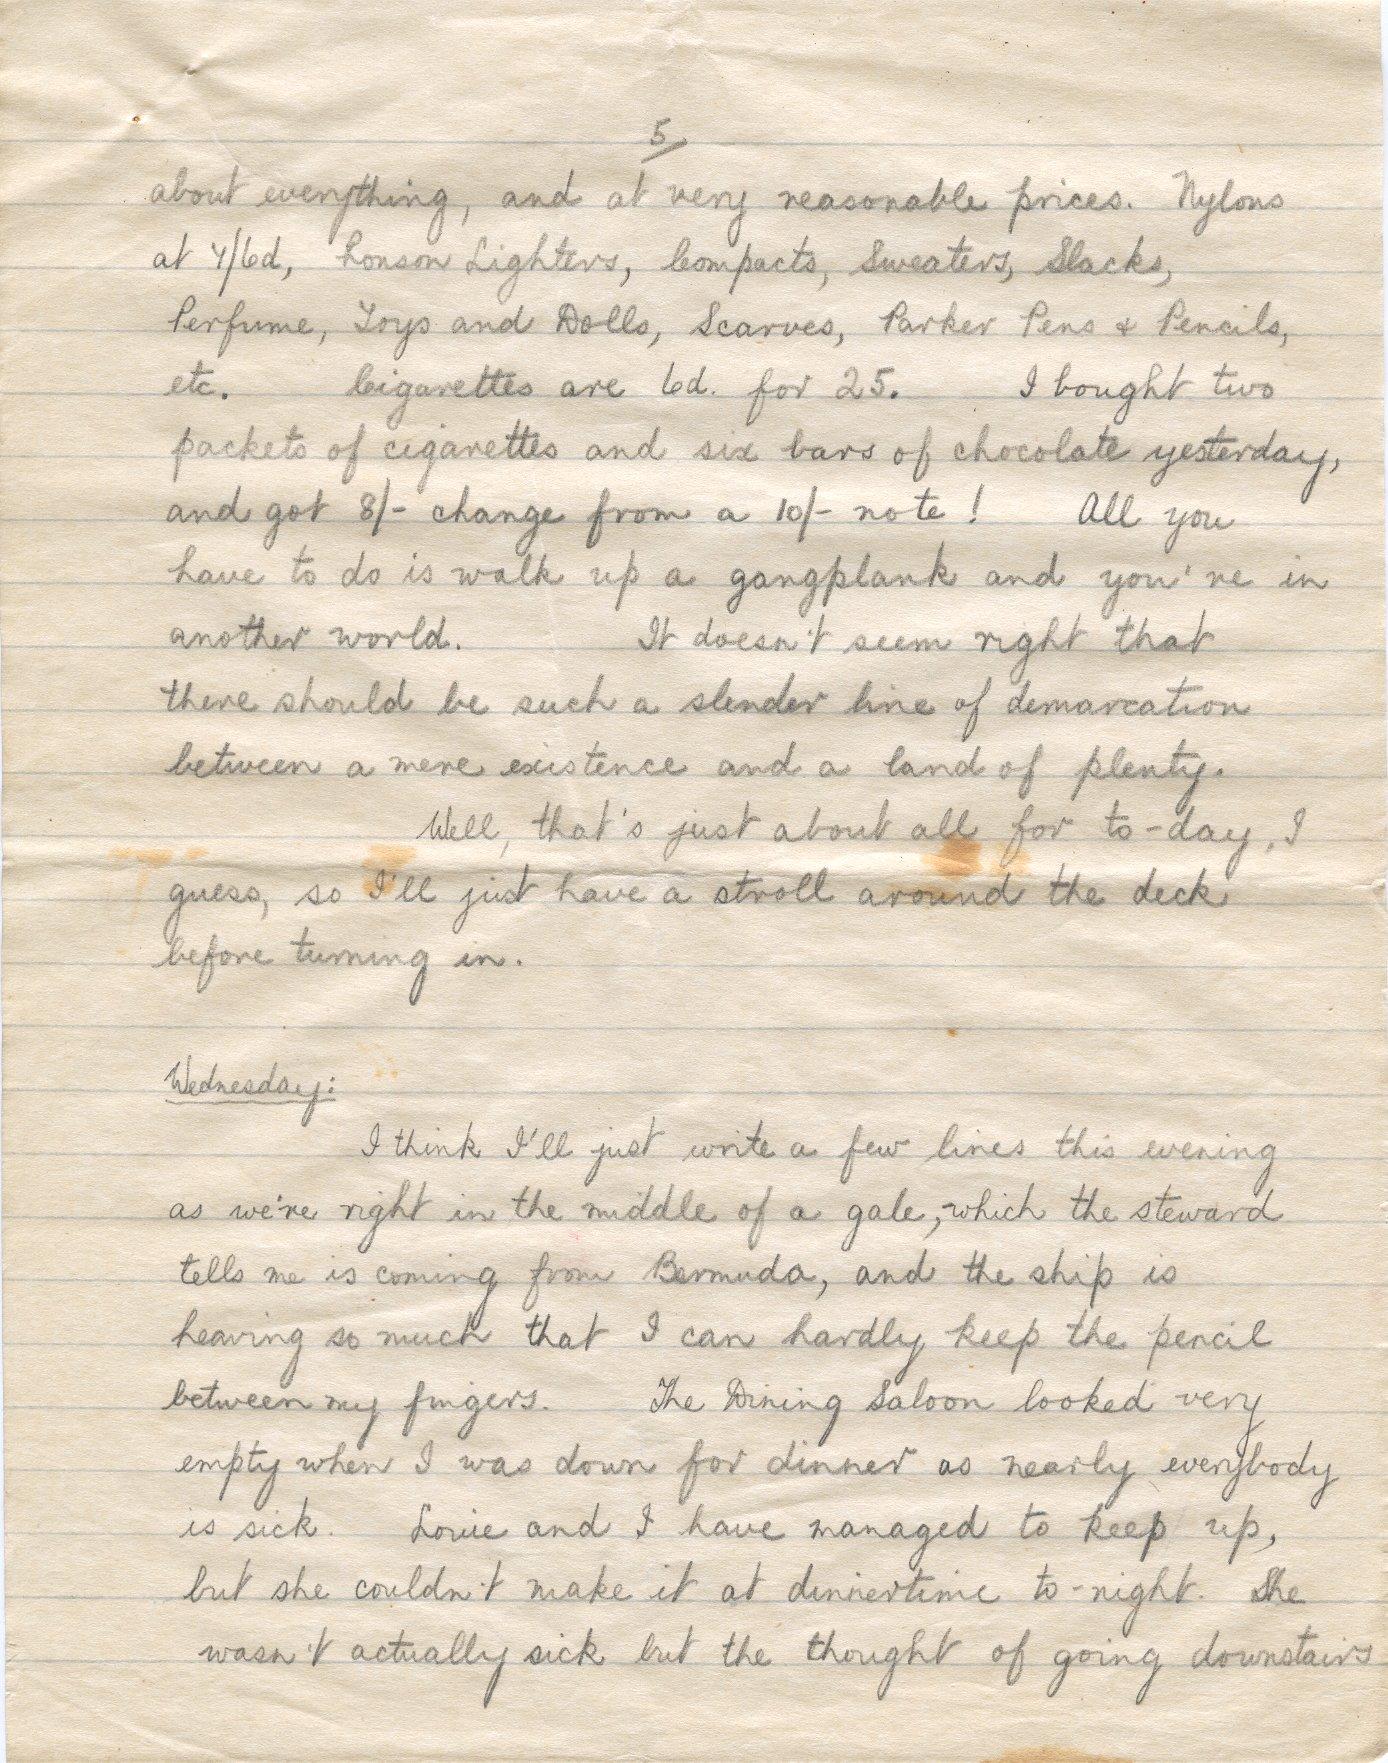 5
about everything, and at very reasonable prices. Nylons
at 4/6d, Ronson Lighters, Compacts, Sweaters, Slacks,
Perfume, Toys and Dolls, Scarves, Parker Pens & Pencils,
etc. Cigarettes are 6d. for 25. I bought two
packets of cigarettes and six bars of chocolate yesterday,
and got 8/- change from a 10/- note! All you
have to do is walk up a gangplank and you're in
another world. It doesn't seem right that
there should be such a slender line of demarcation
between a mere existence and a land of plenty.
Well, that's just about all for to-day, I
guess, so I'll just have a stroll around the deck
before turning in.
Wednesday:
I think I'll just write a few lines this evening
as we're right in the middle of a gale, which the steward
tells me is coming from Bermuda, and the ship is
heaving so much that I can hardly keep the pencil
between my fingers. The Dining Saloon looked very
empty when I was down for dinner as nearly everybody
is sick. Louie and I have managed to keep up,
but she couldn't make it at dinnertime to-night. She
wasn't actually sick but the thought of going downstairs